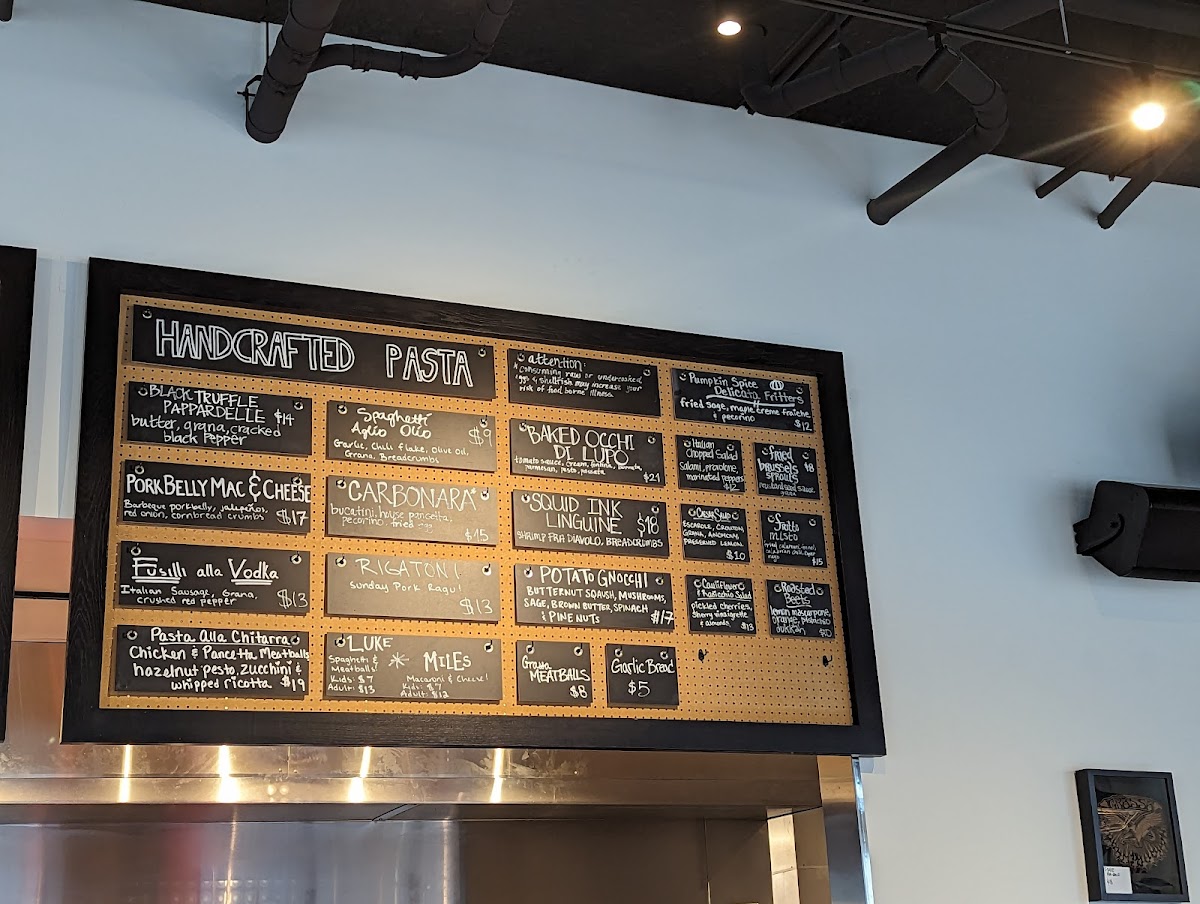 HANDCRAFTED PASTA
attention!
* consuming raw or undercooked
eggs & shellfish may increase your
risk of food borne illness.
Pumpkin Spice
Delicata Fritters
fried sage, maple creme fraiche
& pecorino
$12
BLACK TRUFFLE
PAPPARDELLE $14
butter, grana, cracked
black pepper
Spaghetti
Aglio Olio $9
Garlic, Chili flake, Olive Oil,
Grana, Breadcrumbs
BAKED OCCHI
DI LUPO
tomato sauce, cream, fontina,
parmesan, pesto,
$21
Italian
Chopped Salad
Salami, provolone,
marinated peppers
$12
fried
brussels $8
sprouts
PORK BELLY MAC & CHEESE
Barbeque porkbelly, jalapeños,
red onion, cornbread crumbs $17
CARBONARA
bucatini, house pancetta,
pecorino, fried egg
$15
SQUID INK
LINGUINE $18
SHRIMP FRA DIAVOLO, BREADCRUMBS
CAESAR SALAD
ESCAROLE, CROUTON
GRANA, ANCHOVY,
PRESERVED LEMON
$10
fritto
misto
fried calamari, fennel,
$15
Fusilli alla Vodka
Italian Sausage, Grana,
crushed red pepper $13
RIGATONI
Sunday Pork Ragu!
$13
POTATO GNOCCHI
BUTTERNUT SQAUSH, MUSHROOMS,
SAGE, BROWN BUTTER, SPINACH
& PINE NUTS $17
Cauliflower
& Radicchio Salad
pickled cherries,
sherry vinaigrette
& almonds $13
Roasted
Beets
lemon mascarpone,
orange, pistachio
dukkah $10
Pasta Alla Chitarra
Chicken & Pancetta Meatballs
hazelnut pesto, zucchini &
whipped ricotta $19
LUKE
Spaghetti &
Meatballs
Kids: $7
Adult: $13
MILES
Macaroni & Cheese!
Kids: $7
Adult: $12
Gratta
MEATBALLS
$8
Garlic Bread
$5